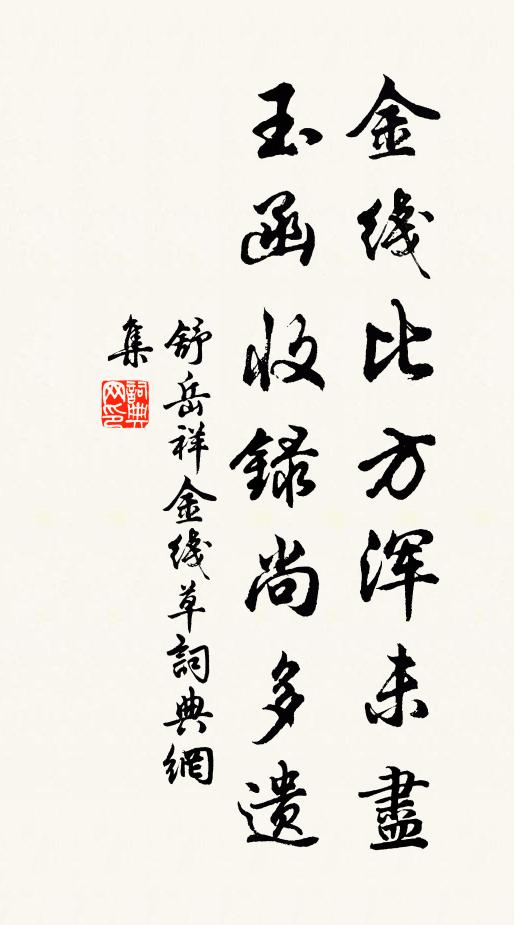 金线比方浑未盡
玉函收録尚多遗
舒岳祥金线草詞典網
集
詞典
网印